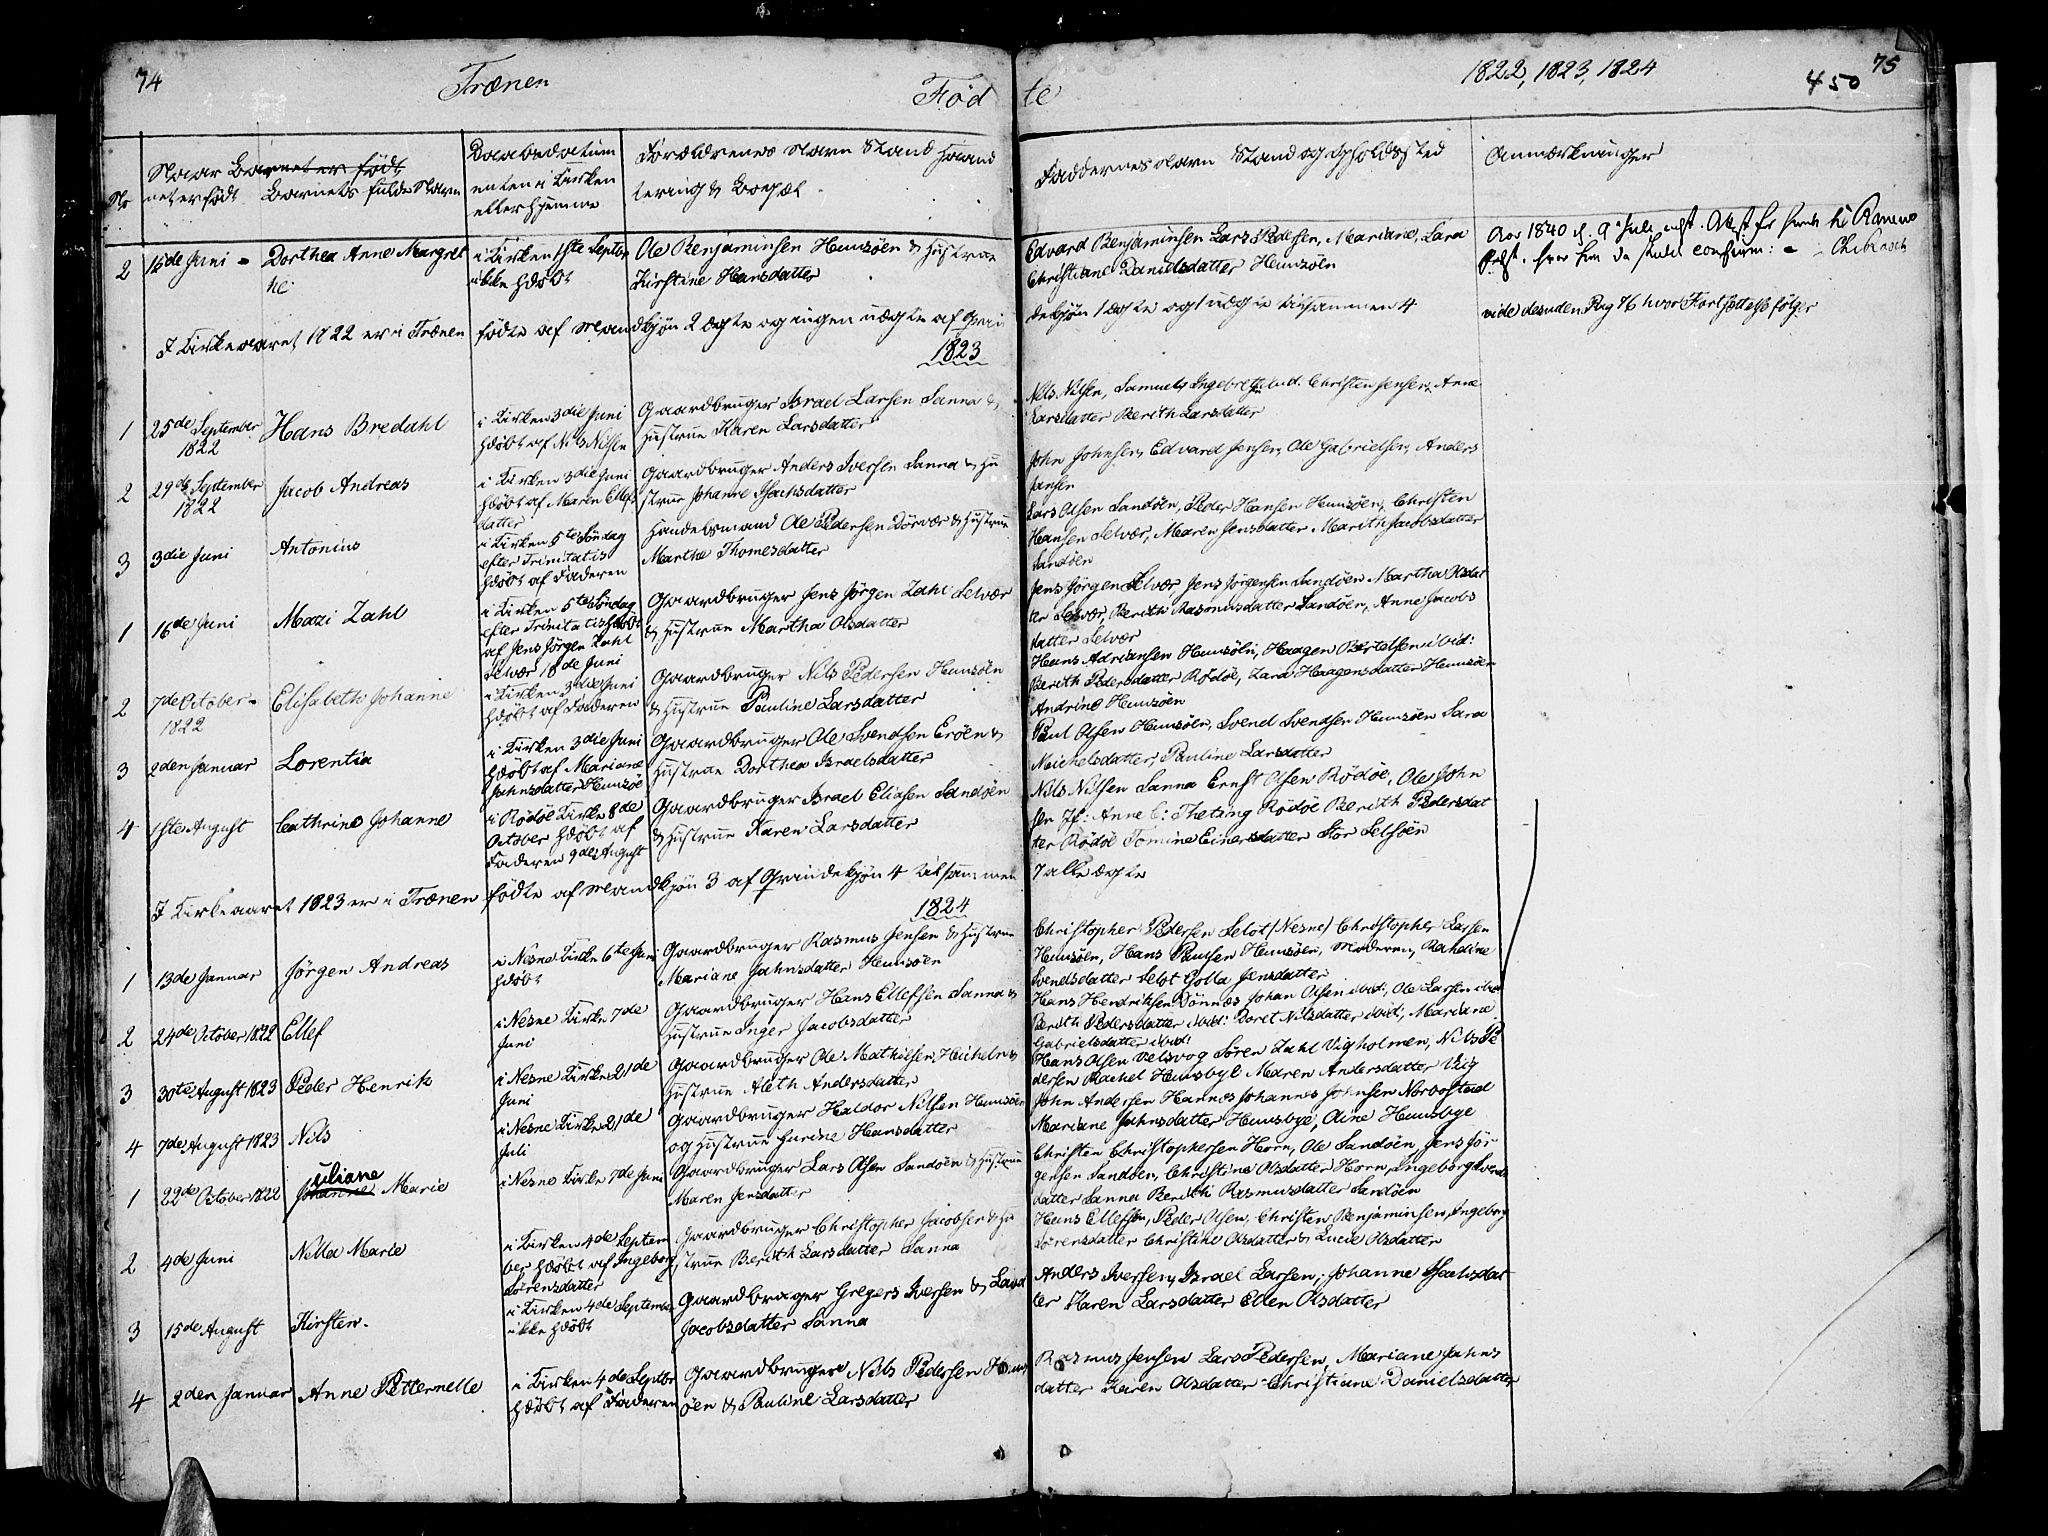 74 Trænen Fød te 1822, 1823, 1824 75
450
No
Naar Barnet er født
net er født
Barnets fulde Navn
Daabsdatum
enten i Kirken
eller hjemme
Forældrenes Navn Stand Haand
tering & Bopæl
Faddernes Navn Stand og Opholdssted
Anmærkninger
2 16de Juni - Dorthea Anne Margret
he
i Kirken 1ste Septbr
ikke hdøbt
Ole Benjaminsen Huusøen & Hustrue
Kirstine Hansdatter
Edvard Benjaminsen Lars Pedersen, Mariane, Lara
Christiane Danielsdatter Huusøen
Aar 1840 d. 9de Juli
I Kirkeaaret 1822 er i Trænen fødte af Mandkjøn 2 ægte og ingen uægte af Qvin
dekjøn 1 ægte og 1 uægte tilsammen 4
vide desuden Pag 76 hvor Fortsættelse følger
1823
1 25de September
1822
Hans Bredahl
i Kirken 3die Juni
hdøbt af Nils Nilsen
Gaardbruger Israel Larsen Sanna &
Hustrue Karen Larsdatter
Nils Nilsen, Samuels Ingebretsen Christen Jensen, Anne
Larsdatter Berith Larsdatter
2 29de September
1822
Jacob Andreas
i Kirken 3die Juni
hdøbt af Maren Ellefs
datter
Gaardbruger Anders Iversen Sanna & Hu
strue Johanne Isachsdatter
John Johnsen, Edvard Jensen, Ole Gabrielsen, Anders
Jansen
3 3die Juni
Antonius
i Kirken 5te Søndag
efter Trinitatis
hdøbt af Faderen
Handelsmand Ole Pedersen Dørvær & Hustrue
Martha Thomesdatter
Lars Olsen Sandøen, Peder Hansen Huusøen, Christen
Hansen Selvær, Maren Jensdatter Marith Jacobsdatter
Sandøen
1 16de Juni
Mazi Zahl
i Kirken 5te Søndag
efter Trinitatis hdøbt
af Jens Jörgen Zahl
Selvær 18de Juni
Gaardbruger Jens Jörgen Zahl Selvær
& Hustrue Martha Olsdatter
Jens Jörgen Selvær, Jens Jörgensen Sandøen Martha Olsdat
ter Selvær, Berith Rasmusdatter Sandøen, Anne Jacobs
datter Selvær
2 7de October -
1822
Elisabeth Johanne
i Kirken 3die Juni
hdøbt af Faderen
Gaardbruger Nils Pedersen Huusøen
& Hustrue Pauline Larsdatter
Hans Adriansen Huusøen, Haagen Bertelsen ibid:
Berith Pedersdatter Rödöe, Zara Haagensdatter Huusøen
Andrine Huusøen
3 2den Januar
Lorentia
i Kirken 3die Juni
hdøbt af Mariane
Jahnsdatter Huusøe
Gaardbruger Ole Svendsen Erøen &
Hustrue Dorthea Israelsdatter
Paul Olsen Huusøen, Svend Svendsen Huusøen Sara
Michelsdatter, Pauline Larsdatter
4 1ste August
Cathrine Johanne
i Rödöe Kirke 8de
October hdøbt af
Faderen 9de August
Gaardbruger Israel Eliasen Sandøen
& Hustrue Karen Larsdatter
Nils Nilsen Sanna Ernst Olsen Rödöe, Ole John
sen Jf: Anne E: Theting Rödöe Berith Pedersdat
ter Rödöe Tomine Einersdatter Stor Selsöen
I Kirkeaaret 1823 er i Trænen fødte af Mandkjøn 3 af Qvindekjøn 4 tilsammen
7 alle ægte
1824
1 13de Januar
Jörgen Andreas
i Nesne Kirke 6te Juni
hdøbt
Gaardbruger Rasmus Jensen & Hustrue
Mariane Jahnsdatter Huusøen
Christopher Pedersen Selöt (Nesne) Christopher Larsen
Huusøen, Hans Paulsen Huusøen, Moderen, Raheline
Svendsdatter Selöt Golla Jensdatter
2 24de October 1822
Ellef
i Nesne Kirke 7de
Juni
Gaardbruger Hans Ellefsen Sanna &
Hustrue Inger Jacobsdatter
Hans Hendriksen Dönnæs Johan Olsen ibid:, Ole Larsen ibid
Berith Pedersdatter ibid: Doret Nilsdatter ibid, Mariane
Gabrielsdatter ibid:
3 30te August 1823
Peder Henrik
i Nesne Kirke 21de
Juni
Gaardbruger Ole Mathisen, &
Hustrue Aleth Andersdatter
Hans Olsen Zahl Vigholmen, Nils Pe
dersen Rachel Huusbye Maren Andersdatter Viig
4 7de August 1823
Nils
i Nesne Kirke 21de
Juli
Gaardbruger Haldor Nilsen Huusøen
og Hustrue Hansdatter
John Andersen Hannes Johannes Johnsen
Mariane Jahnsdatter Huusbye, Aine Huusbye
1 22de October 1822
uliane
Johanne Marie
i Nesne Kirke 7de Juni
Gaardbruger Lars Olsen Sandøen & Hustrue
Maren Jensdatter
Christen Christophersen Horn, Ole Sandøen, Jens Jör
gensen Sandøen, Christine Olsdatter Horn, Ingeborg Svends
datter Sanna Berith Rasmusdatter Sandøen
2 4de Juni
Nella Marie
i Kirken 4de Septem
ber hdøbt af Ingeborg
Sørensdatter
Gaardbruger Christopher Jacobsen & Hu
strue Berith Larsdatter Sanna
Hans Ellefsen, Peder Olsen, Christen Benjaminsen, Ingeborg
Sørensdatter Christine Olsdatter & Lucie Olsdatter
3 15de August
Kirsten -
i Kirken 4de Septembr
ikke hdøbt
Gaardbruger Gregers Iversen &
Jacobsdatter Sanna
Anders Iversen, Israel Larsen, Johanne Isachsdat
ter Karen Larsdatter Ellen Olsdatter
4 2den Januar
Anne Petternelle
i Kirken 4de Septbr
hdøbt af Faderen
Gaardbruger Nils Pedersen Huus
øen & Pauline Larsdatter
Rasmus Jensen Lars Pedersen, Mariane Jahns
datter Karen Olsdatter Christiane Danielsdatter